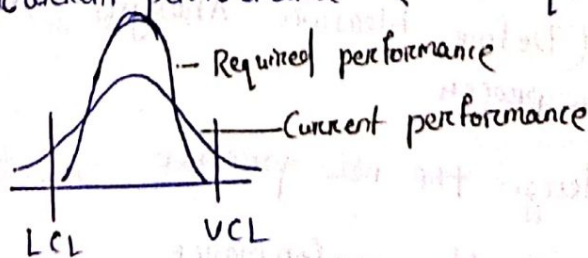 Required performance
Current performance
LCL
UCL